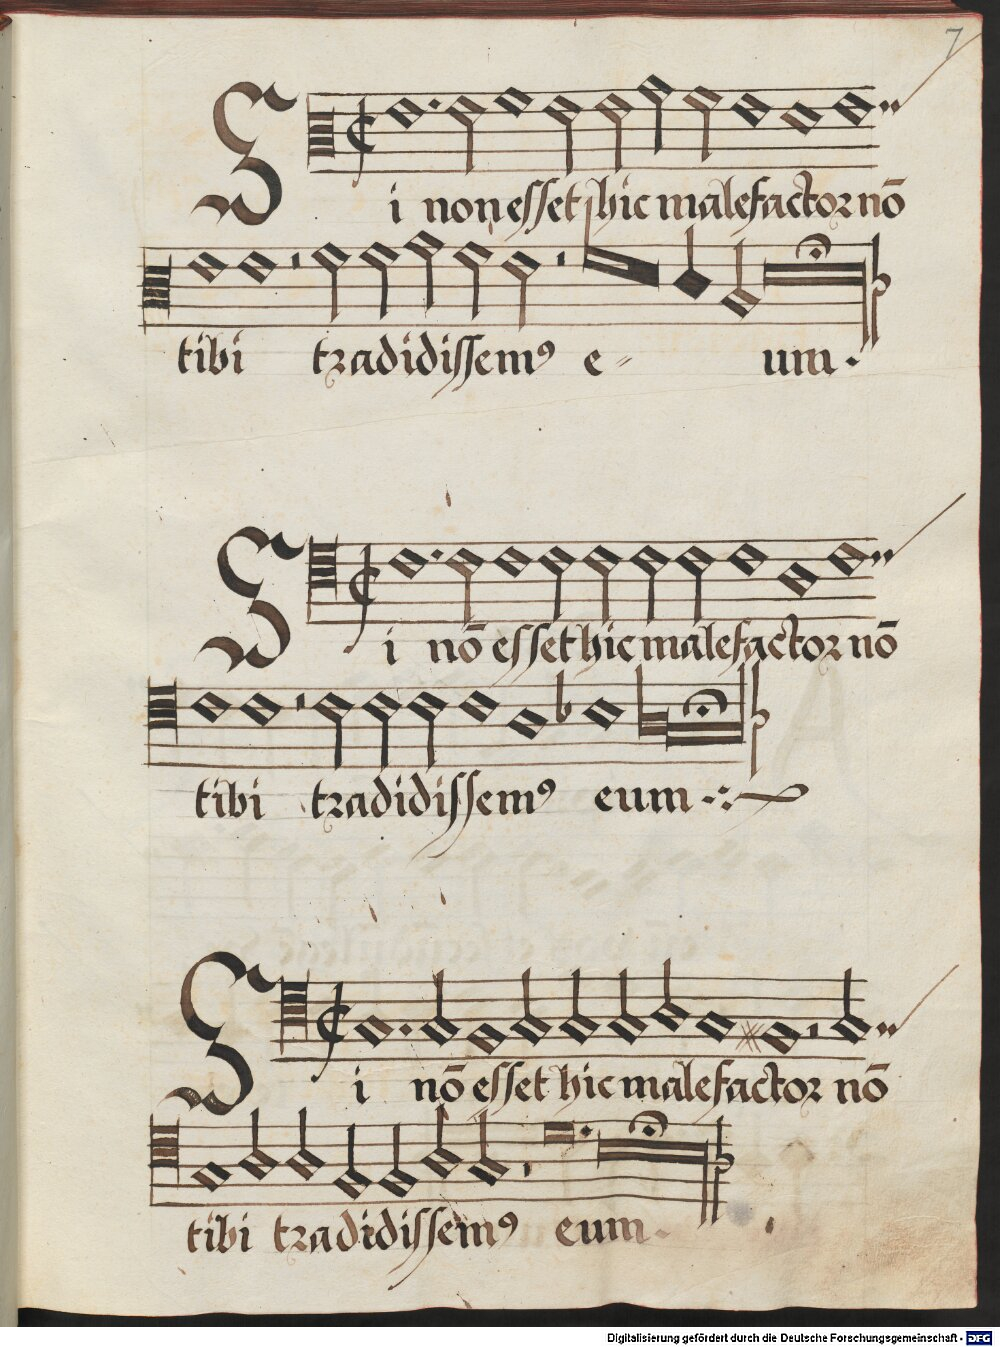 7
Si non esset hic malefactor nō
tibi tradidissemꝰ e- um.
Si nō esset hic malefactor nō
tibi tradidissemꝰ eum
Si nō esset hic malefactor nō
tibi tradidissemꝰ eum.
Digitalisierung gefördert durch die Deutsche Forschungsgemeinschaft - DFG